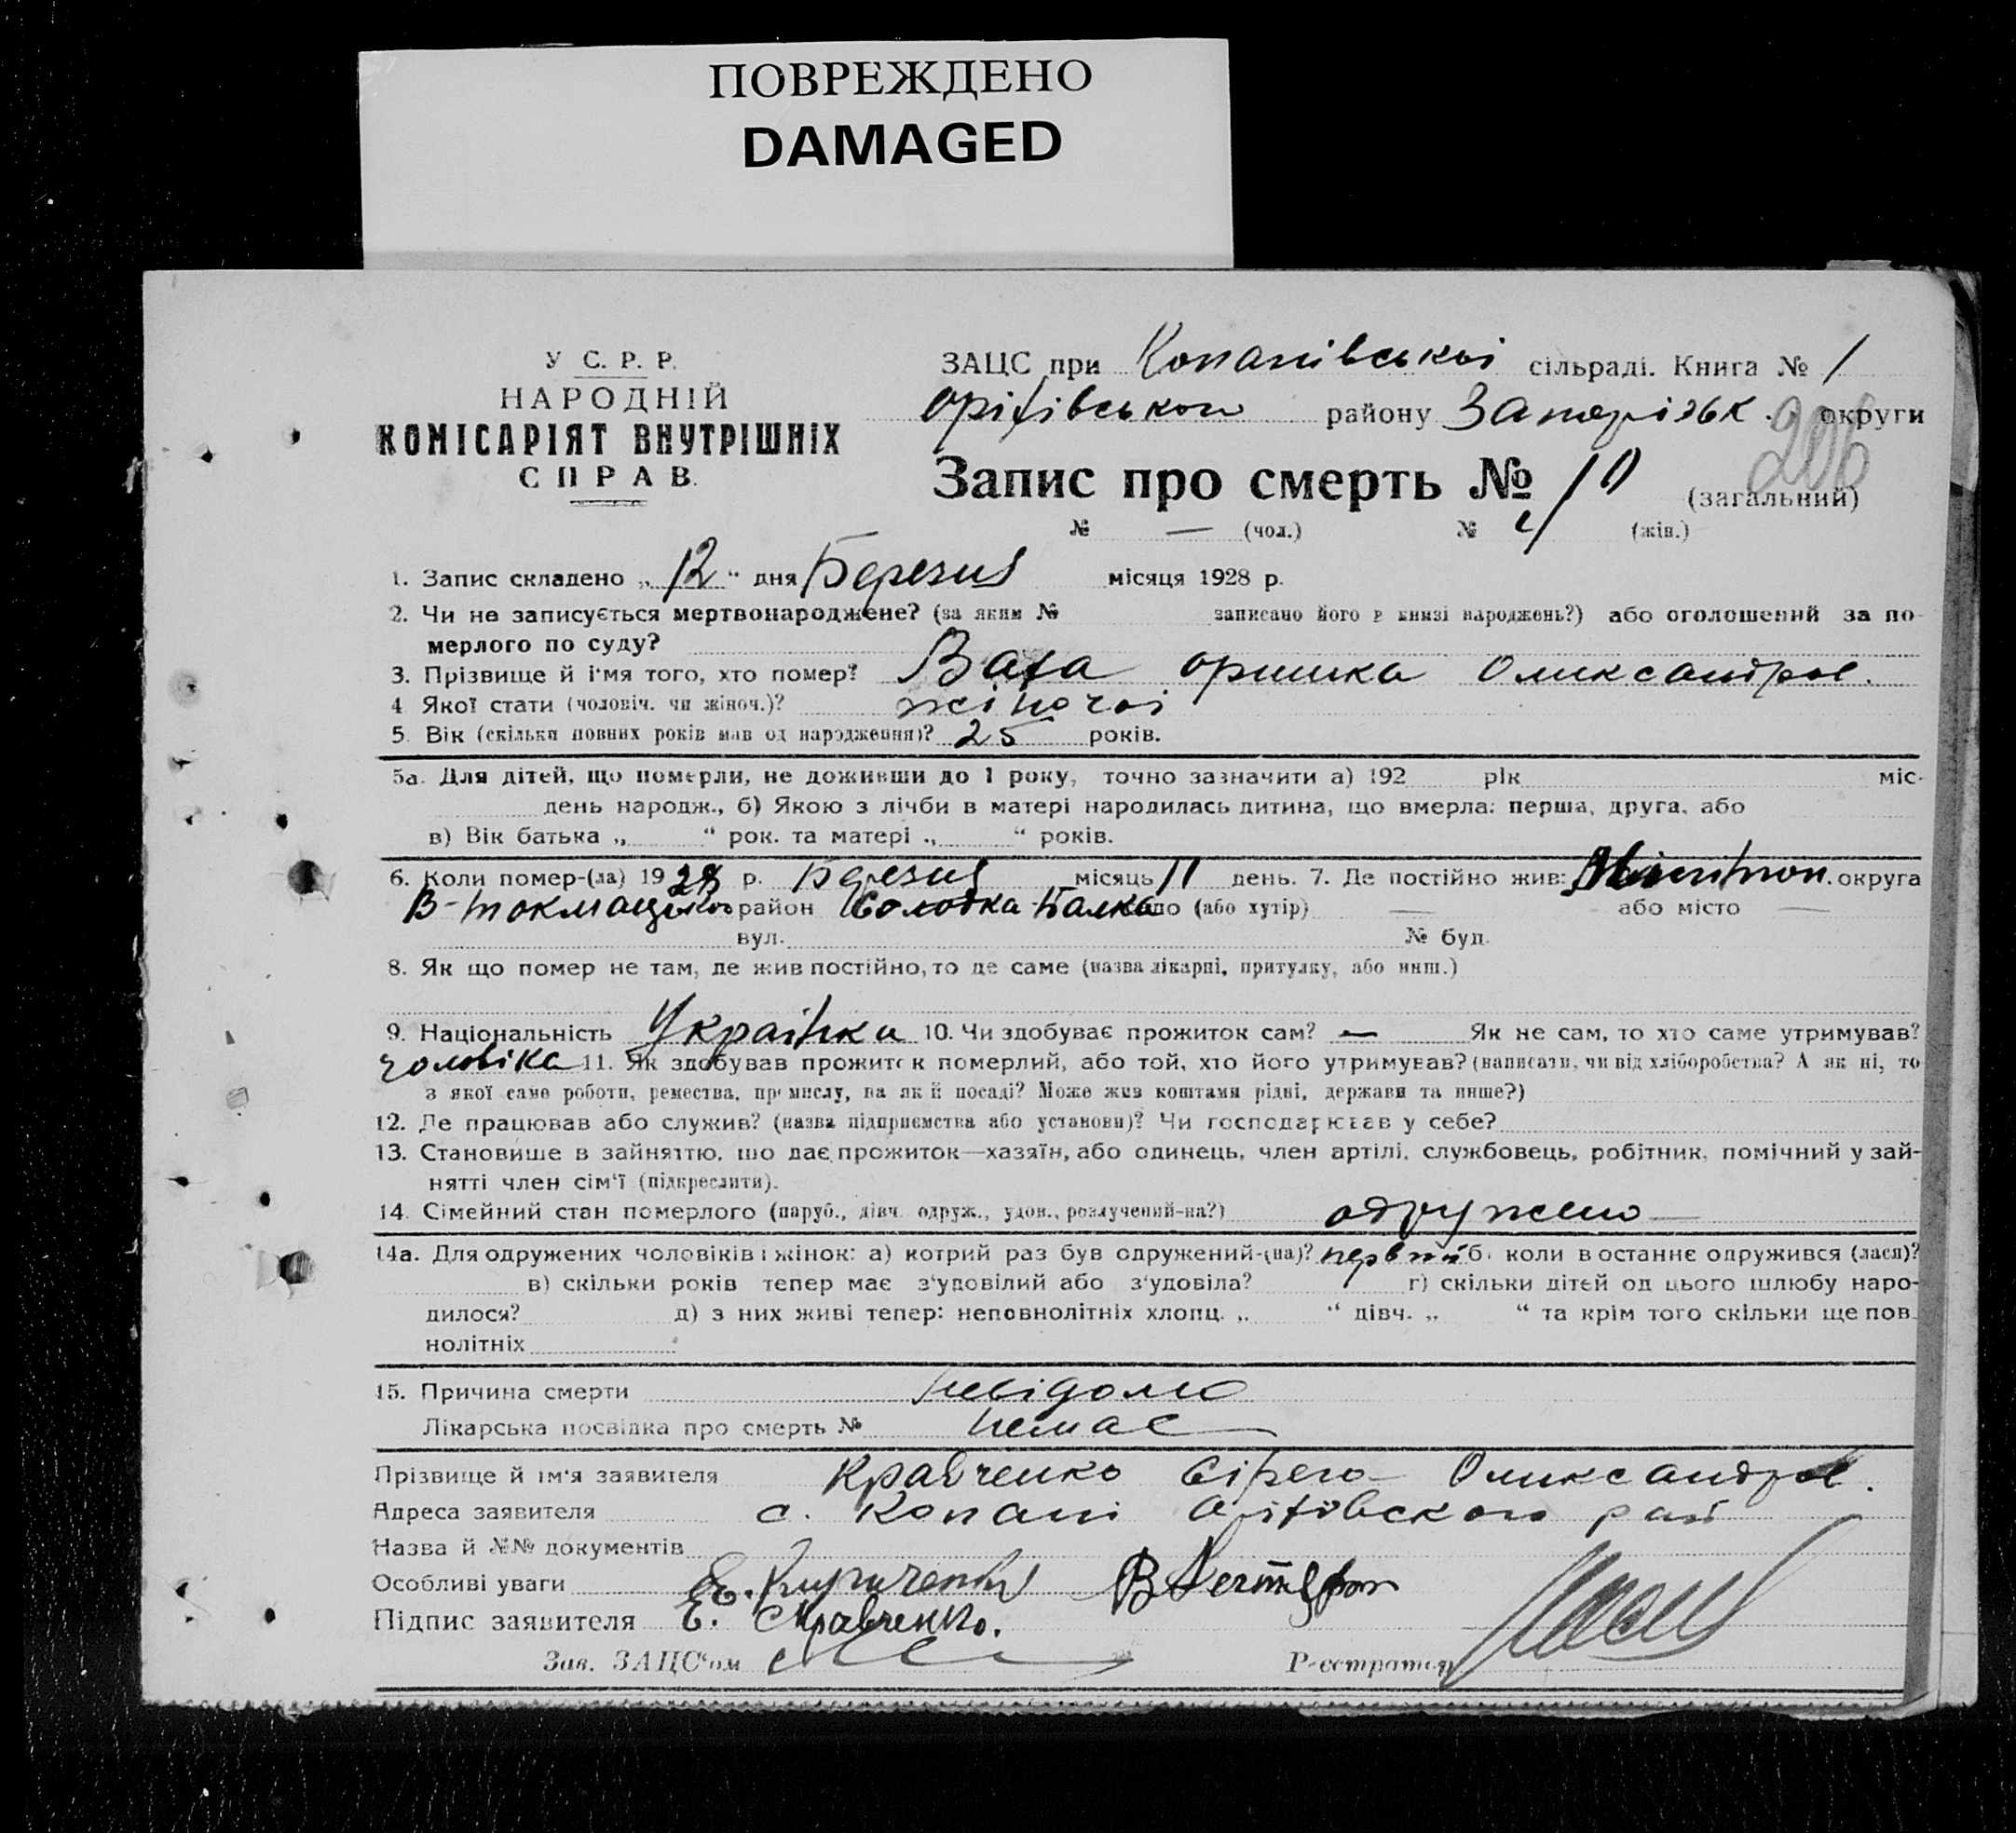 ПОВРЕЖДЕНО
DAMAGED
У С. Р. Р.
НАРОДНІЙ
КОМІСАРІЯТ ВНУТРІШНІХ
СПРАВ.
ЗАЦС при Копанівської сільраді. Книга № 1
Оріхівського району Запорізьк. округи
206
Запис про смерть № 10 (загальний)
№ — (чол.) № 4 (жін.)
1. Запис складено „12“ дня Березня місяця 1928 р.
2. Чи не записується мертвонароджене? (за яким № записано його в книзі народжень?) або оголошений за по-
мерлого по суду?
3. Прізвище й ім'я того, хто помер? Ваха оришка Олександров.
4 Якої стати (чоловіч. чи жіноч.)? жіночої
5. Вік (скільки повних років мав од народження)? 25 років.
5а. Для дітей, що померли, не доживши до 1 року, точно зазначити а) 192 рік міс-
день народж., б) Якою з лічби в матері народилась дитина, що вмерла: перша, друга, або
в) Вік батька „ “ рок. та матері „ “ років.
6. Коли помер-(ла) 1928 р. Березня місяць 11 день. 7. Де постійно жив: округа
В-Токмацького район Солодка-Балка село (або хутір) — або місто —
вул. № буд.
8. Як що помер не там, де жив постійно, то де саме (назва лікарні, притулку, або инш.)
9. Національність Українка 10. Чи здобуває прожиток сам? — Як не сам, то хто саме утримував?
чоловіка 11. Як здобував прожиток померлий, або той, хто його утримував? (написати, чи від хліборобства? А як ні, то
з якої саме роботи, ремества, промислу, на якій посаді? Може жив коштами рідні, держави та инше?)
12. Де працював або служив? (назва підприємства або установи)? Чи господарював у себе?
13. Становище в зайняттю, що дає прожиток—хазяїн, або одинець, член артілі, службовець, робітник, помічний у зай-
нятті член сім'ї (підкреслити).
14. Сімейний стан померлого (паруб., дівч. одруж., удов., розлучений-на?) одружено —
14а. Для одружених чоловіків і жінок: а) котрий раз був одружений-(на)? первий б) коли в останнє одружився (лася)?
в) скільки років тепер має з'удовілий або з'удовіла? г) скільки дітей од цього шлюбу наро-
дилося? д) з них живі тепер: неповнолітніх хлопц. „ “ дівч. „ “ та крім того скільки ще пов-
нолітніх
15. Причина смерти Невідомо
Лікарська посвідка про смерть № Немає
Прізвище й ім'я заявителя Кравченко Олександров.
Адреса заявителя с. Копані Оріхівского рай
Назва й №№ документів
Особливі уваги
Підпис заявителя Е. Кравченко.
Зав. ЗАЦС'ом Реєстратор